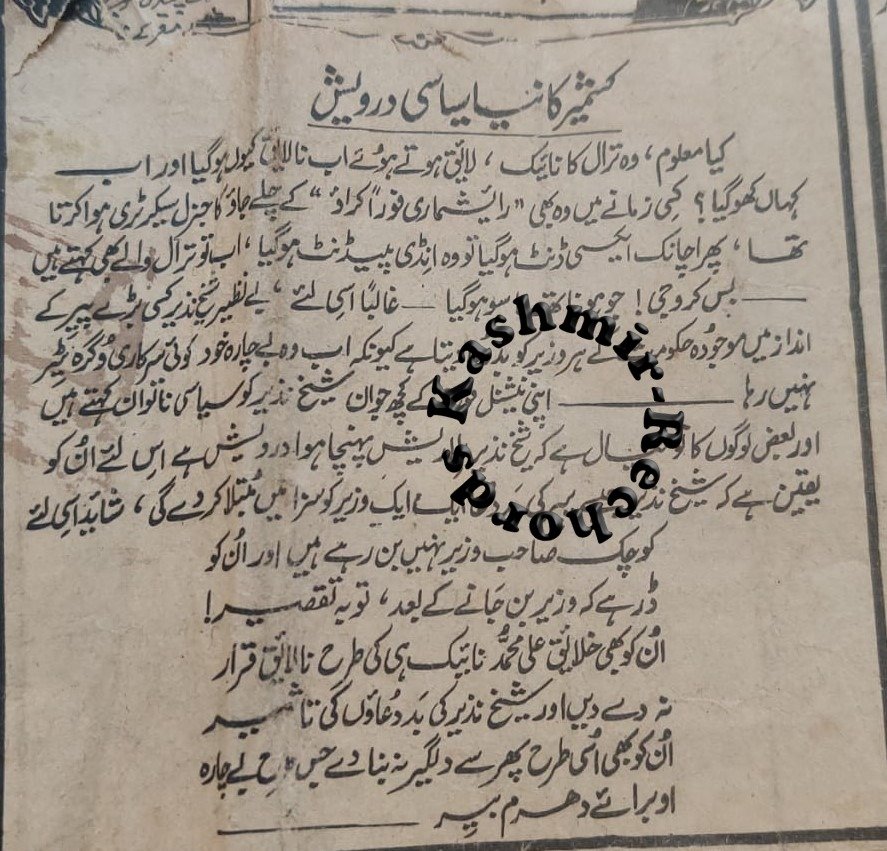 کشمیر کا نیا سیاسی درویش
کیا معلوم، وہ ترال کا نائیک، لائق ہوتے ہوئے اب نالائق کیوں ہوگیا اور اب
کہاں کھو گیا؟ کسی زمانے میں وہ بھی "رائیشماری فوراً کراؤ" کے چلے جاؤ کا جنرل سیکرٹری ہوا کرتا
تھا، پھر اچانک ایکسی ڈنٹ ہوگیا تو وہ انڈی پیپڈنٹ ہوگیا، اب تو ترال والے بھی کہتے ہیں
— بس کرو جی! جو ہونا تھا سو ہوگیا — غالباً اسی لئے، بے نظیر شیخ نذیر کسی بڑے پیر کے
انداز میں موجودہ حکومت کے ہر وزیر کو بددعا دیتا ہے کیونکہ اب وہ بے چارہ خود کوئی سرکاری وگرہ پیر
نہیں رہا — اپنی نیشنل کے کچھ جوان شیخ نذیر کو سیاسی ناتوان کہتے ہیں
اور بعض لوگوں کا خیال ہے کہ شیخ نذیر پہنچا ہوا درویش ہے اس لئے ان کو
یقین ہے کہ شیخ نذیر کی ایک ایک وزیر کو سزا میں مبتلا کردے گی، شاید اسی لئے
کوچک صاحب وزیر نہیں بن رہے ہیں اور ان کو
ڈر ہے کہ وزیر بن جانے کے بعد، توبہ تقصیر!
ان کو بھی خلائق علی محمد نائیک ہی کی طرح نالائق قرار
نہ دے دیں اور شیخ نذیر کی بددعاؤں کی تاثیر
ان کو بھی اسی طرح پھر سے دلگیر نہ بنا دے جس طرح بے چارہ
اوبرائے دھرم بیر —
Kashmir-Rechords